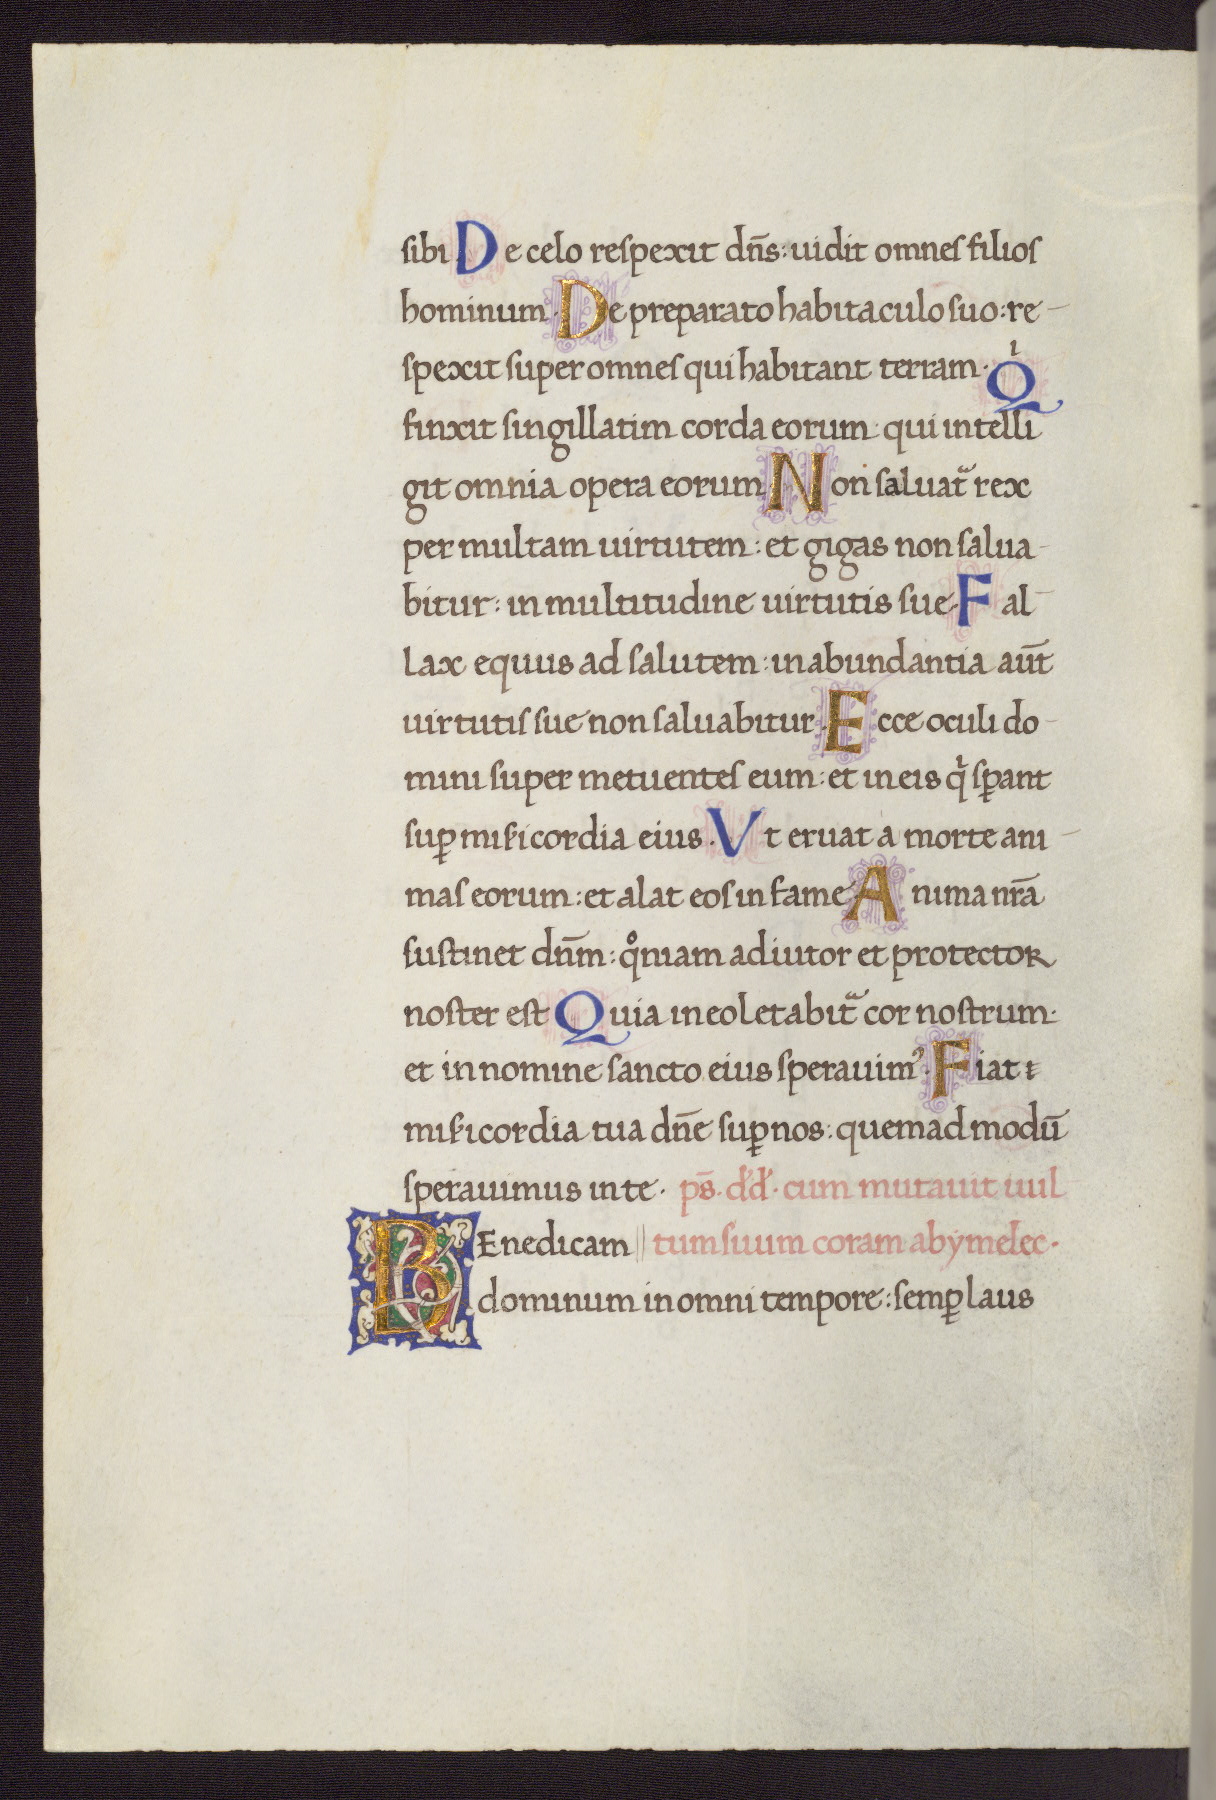 sibi De celo respexit dn̄s: uidit omnes filios
hominum. De preparato habitaculo suo: re-
spexit super omnes qui habitant terram. Qͥ
finxit singillatim corda eorum: qui intelli
git omnia opera eorum Non saluat᷑ rex
per multam uirtutem: et gigas non salua-
bitur: in multitudine uirtutis sue. Fal-
lax equus ad salutem: in abundantia aut̄
uirtutis sue non saluabitur. Ecce oculi do-
mini super metuentes eum: et in eis qͥ sꝑant
suꝑ misericordia eius. Vt eruat a morte ani-
mas eorum: et alat eos in fame. Anima nr̄a
sustinet dn̄m: qͦniam adiutor et protector
noster est Quia in eo letabit᷑ cor nostrum.
et in nomine sancto eius sperauimꝰ. Fiat ⁊
misericordia tua dn̄e suꝑ nos: quemadmodū
sperauimus in te. ps̄. d'd'. cum mutauit uul
Benedicam || tum suum coram abẏmelec.
dominum in omni tempore: semꝑ laus